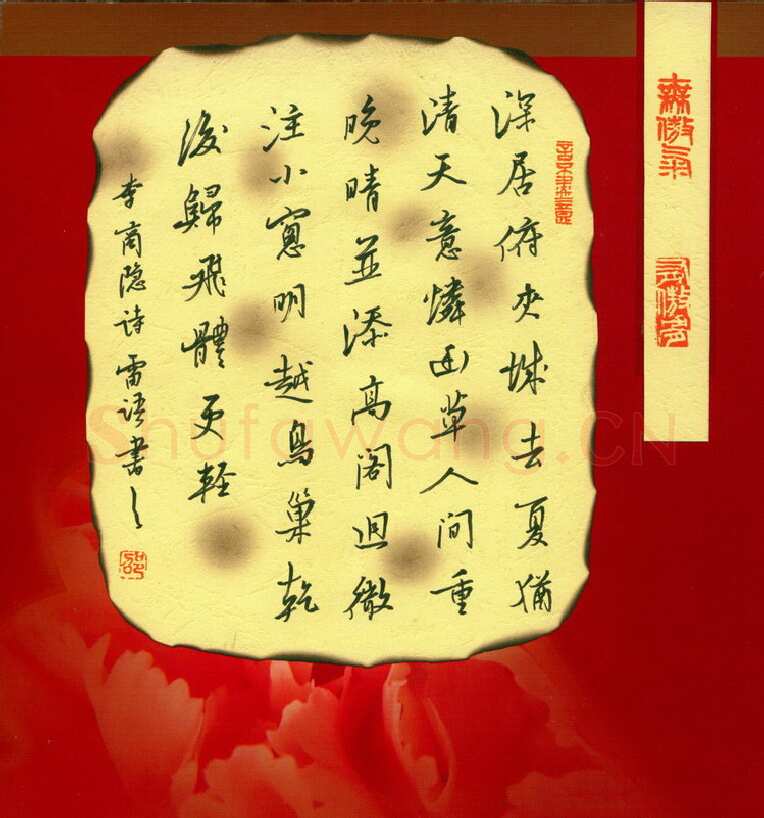 深居俯夾城去夏猶
清天意憐幽草人间重
晚晴並添高阁迥微
注小窓明越鳥巢乾
後歸飛體更軽
李商隐诗雷语書之
Shufawang.CN